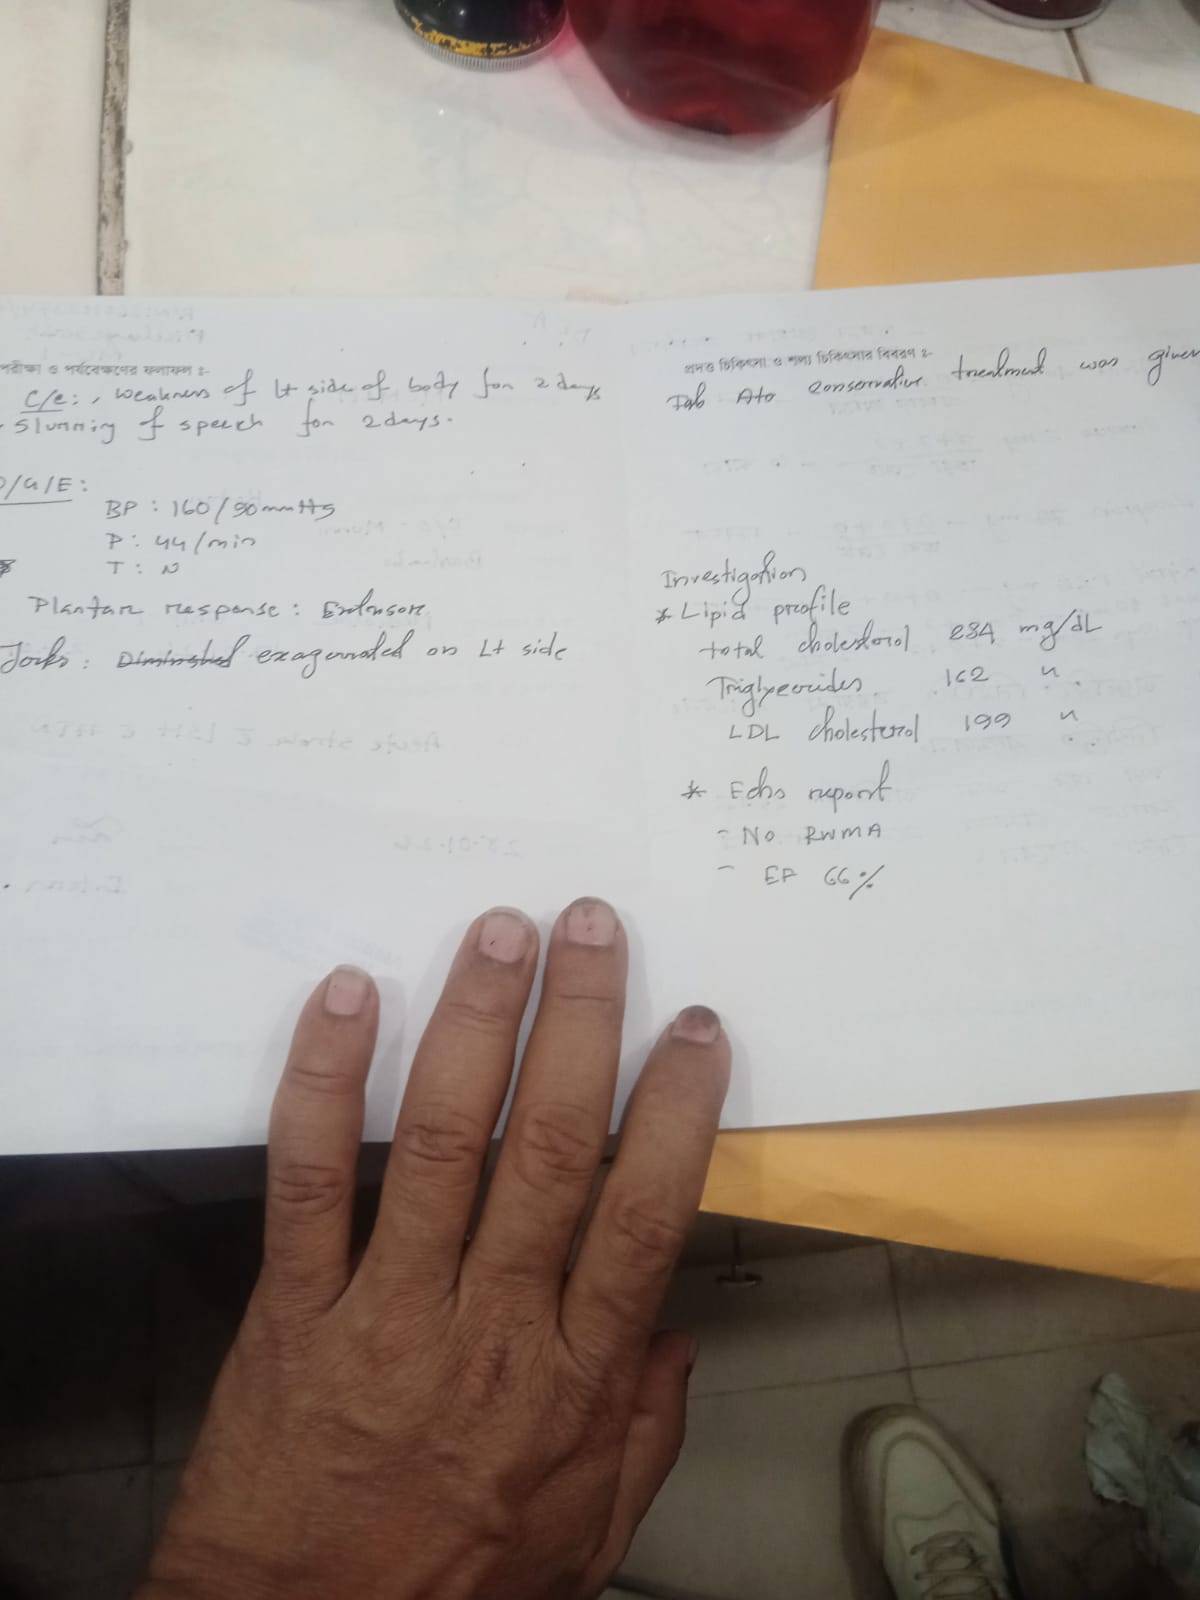 পরীক্ষা ও পর্যবেক্ষণের ফলাফল ঃ-
C/C: , weakness of Lt side of body for 2 days
- Slurring of speech for 2 days.
O/G/E:
BP : 160/90 mmHg
P : 44/min
T : N
Plantar response : Extensor
Jerks : exagerrated on Lt side
প্রদত্ত চিকিৎসা ও শল্য চিকিৎসার বিবরণ ঃ-
conservative treatment was given
Investigation
* Lipid profile
total cholesterol 234 mg/dL
Triglycerides 162 "
LDL cholesterol 199 "
* Echo report
- No RWMA
- EF 66%